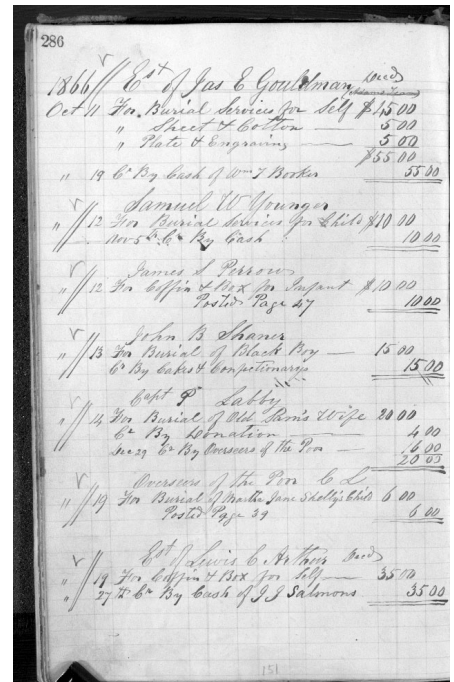 286
1866 Est of Jas E Gouldman Decd
Oct 11 For Burial Services for Self $45.00
" Sheet & Cotton — 5 00
" Plate & Engraving — 5 00
$55 00
" 19 Cr By Cash of Wm T Booker 55 00
Samuel W Younger
" 12 For Burial Services for Child $10 00
Nov 5th Cr By Cash 10 00
James S Perrow
" 12 For Coffin & Box for Infant $10 00
Posted Page 47 10 00
John B Shaner
" 13 For Burial of Black Boy — 15 00
Cr By Cakes & Confectionarys 15 00
Capt P Labby
" 14 For Burial of Old Sam's Wife 20 00
Cr By Donation — 4 00
Dec 29 Cr By Overseers of the Poor — 6 00
20 00
Overseers of the Poor C. L.
" 19 For Burial of Jane Shelly's Child 6 00
Posted Page 39 6 00
Est of Lewis C Arthur Decd
" 19 For Coffin & Box for Self — 35 00
" 27th Cr By Cash of J J Salmons 35 00
151